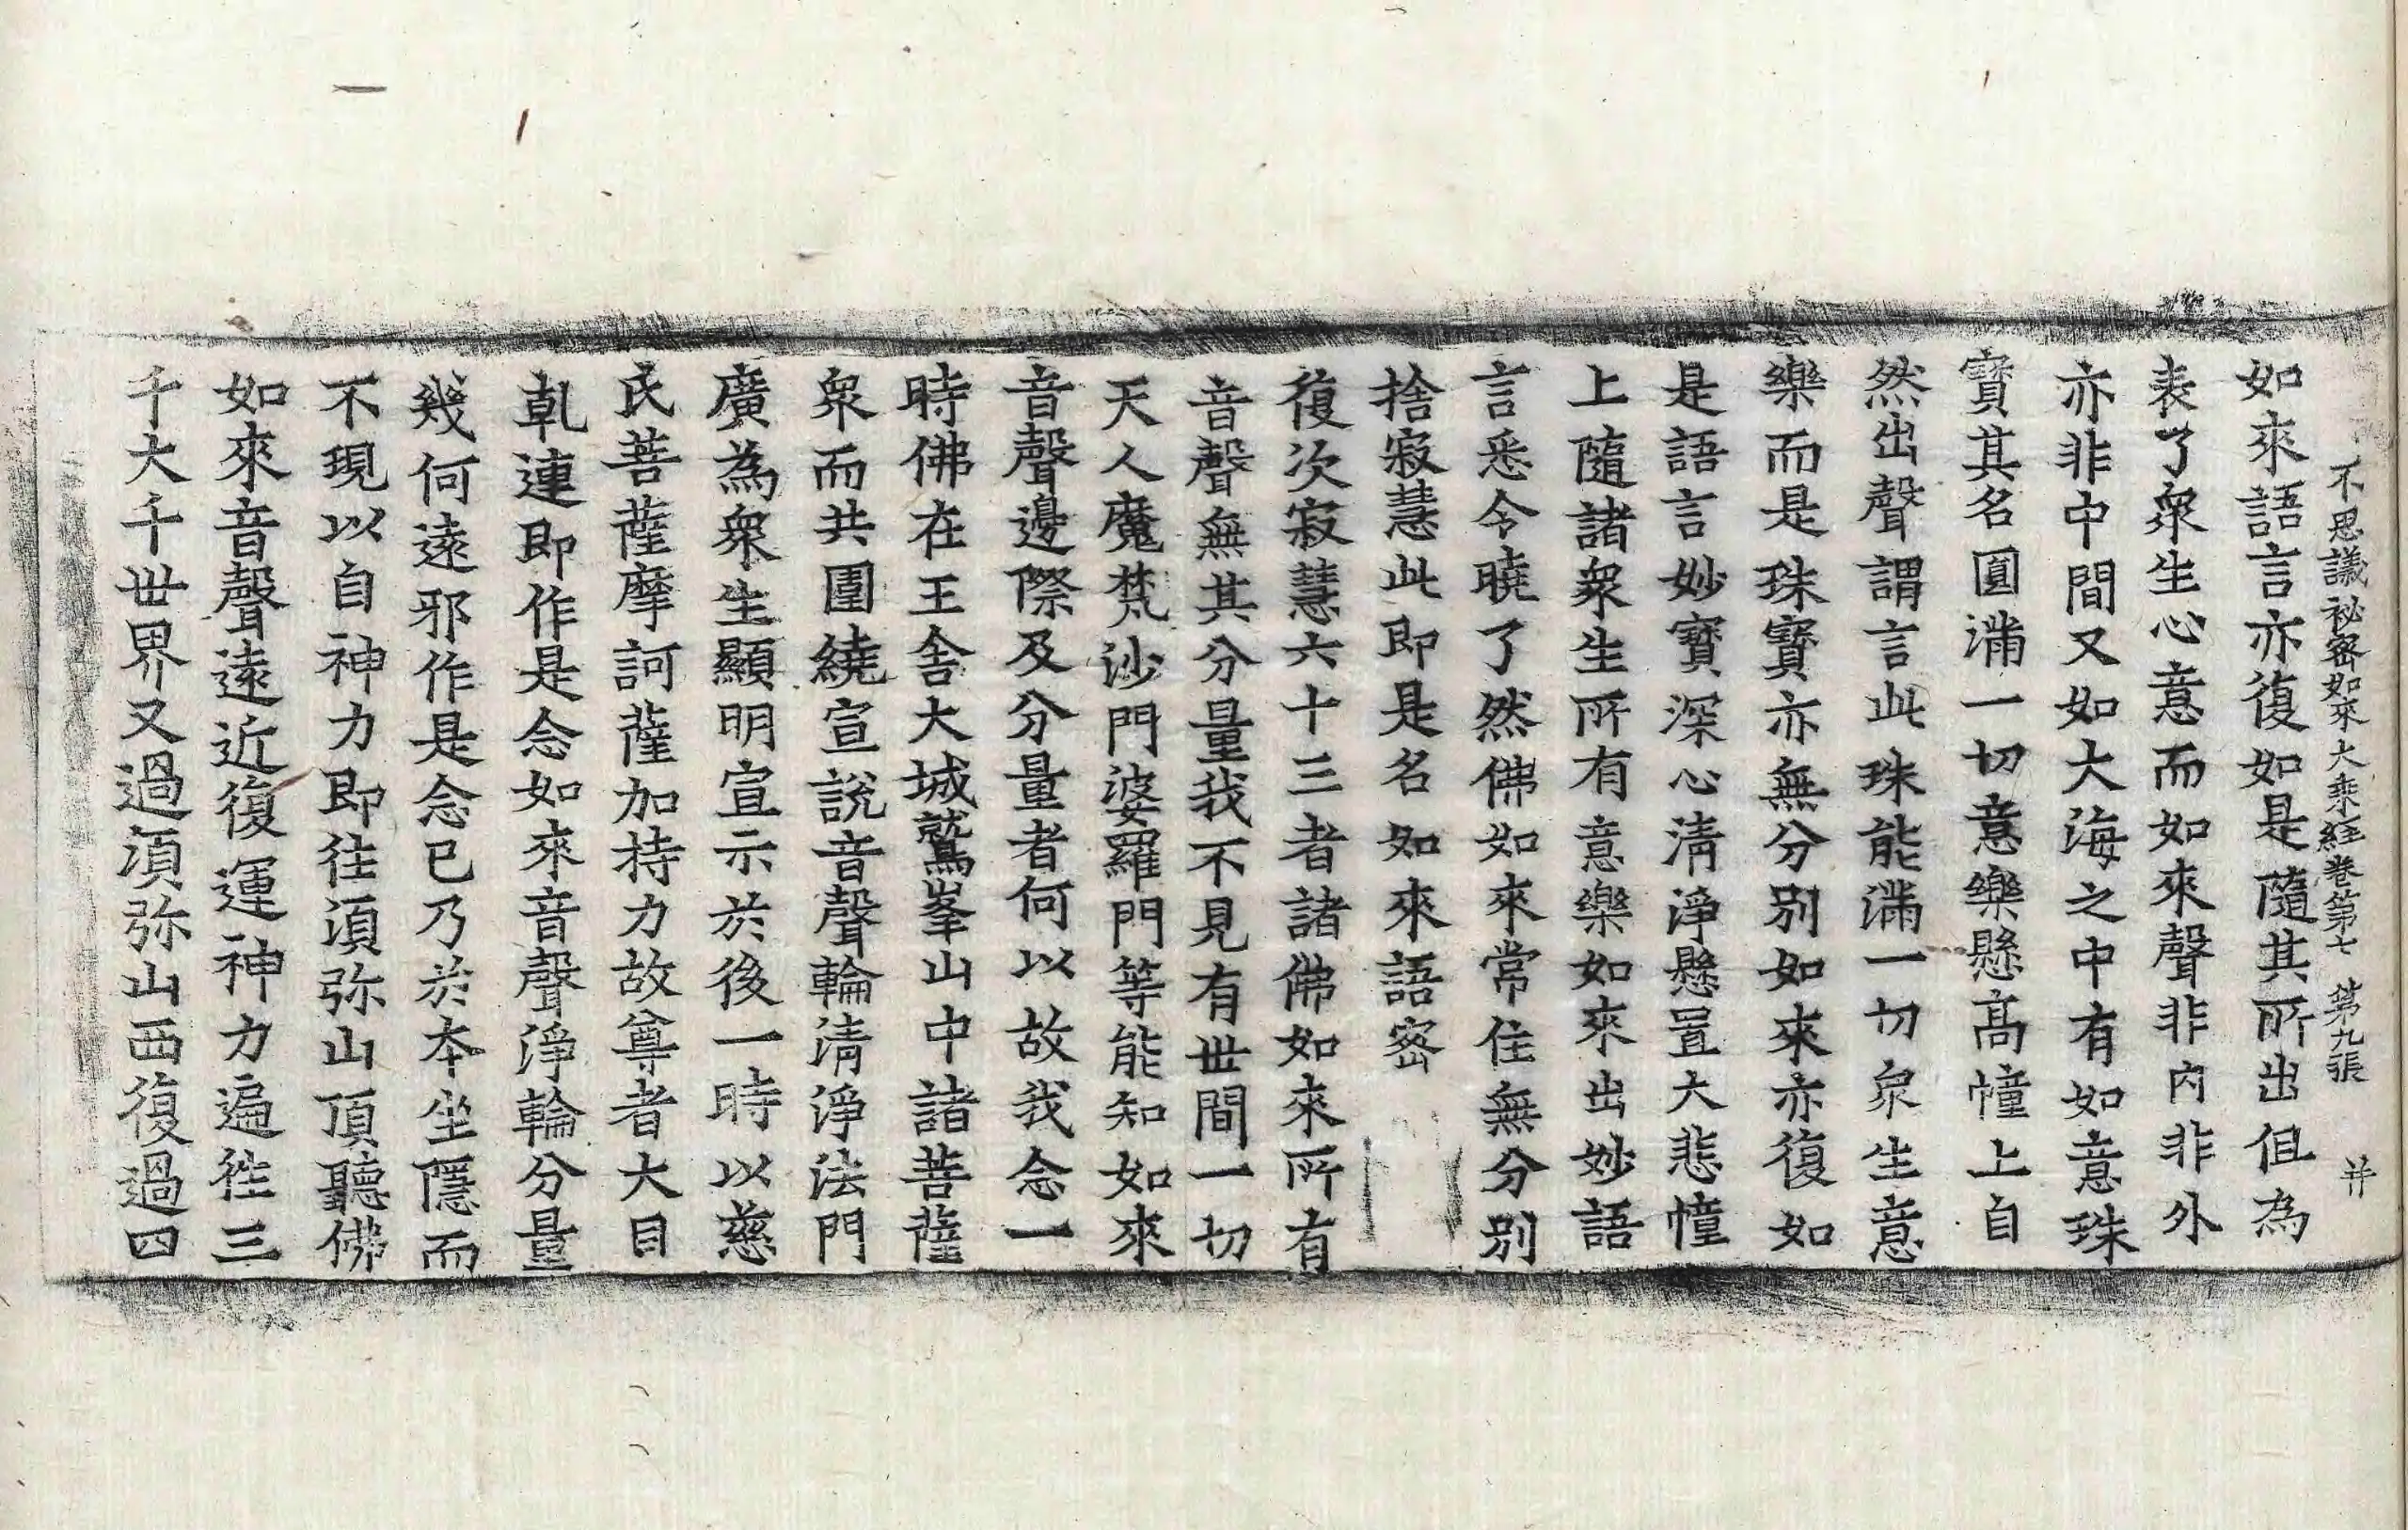 不思議祕密如來大乘経卷第七 第九張 并
如來語言亦復如是隨其所出但為
表了衆生心意而如來聲非內非外
亦非中間又如大海之中有如意珠
寶其名圓滿一切意樂懸高幢上自
然出聲謂言此珠能滿一切衆生意
樂而是珠寶亦無分別如來亦復如
是語言妙寶深心清淨懸置大悲幢
上隨諸衆生所有意樂如來出妙語
言悉令曉了然佛如來常住無分別
捨寂慧此即是名如來語密
復次寂慧六十三者諸佛如來所有
音聲無其分量我不見有世間一切
天人魔梵沙門婆羅門等能知如來
音聲邊際及分量者何以故我念一
時佛在王舍大城鷲峯山中諸菩薩
衆而共圍繞宣說音聲輪清淨法門
廣為衆生顯明宣示於後一時以慈
氏菩薩摩訶薩加持力故尊者大目
乹連即作是念如來音聲淨輪分量
幾何遠邪作是念已乃於本坐隱而
不現以自神力即往湏弥山頂聽佛
如來音聲遠近復運神力遍徃三
千大千世界又過湏弥山西復過四